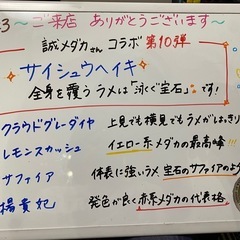 ～ご来店 ありがとうございます～
誠メダカさん コラボ 第10弾
サイシュウヘイキ
全身を覆うラメは「泳ぐ宝石」です!
クラウドグレーダイヤ 上見でも横見でもラメがはっきり
レモンスカッシュ イエロー系メダカの最高峰!!!
サファイア 体長に強いラメ 宝石のサファイアのよう
楊貴妃 発色が良く赤系メダカの代表格